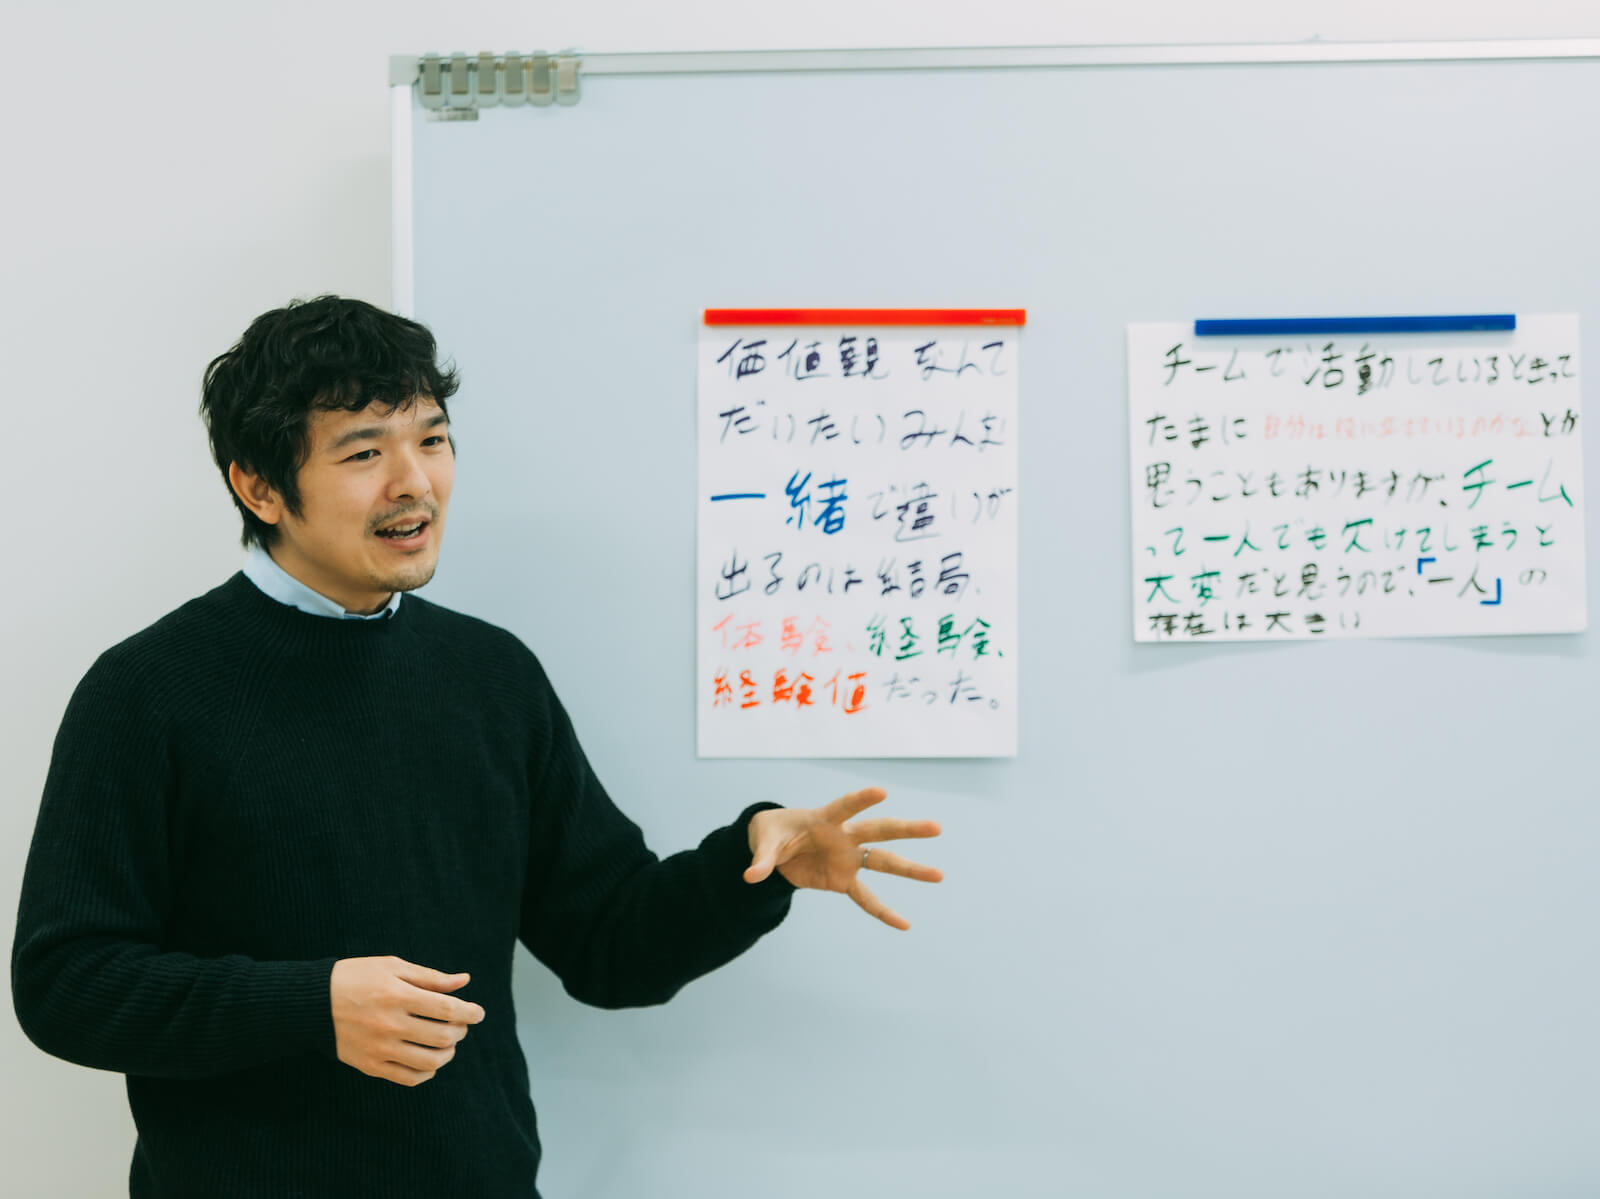 価値観なんて
だいたいみんな
一緒で違いが
出るのは結局、
体験、経験、
経験値だった。
チームで活動しているときって
たまに自分は役に立てているのかなとか
思うこともありますが、チーム
って一人でも欠けてしまうと
大変だと思うので、「一人」の
存在は大きい